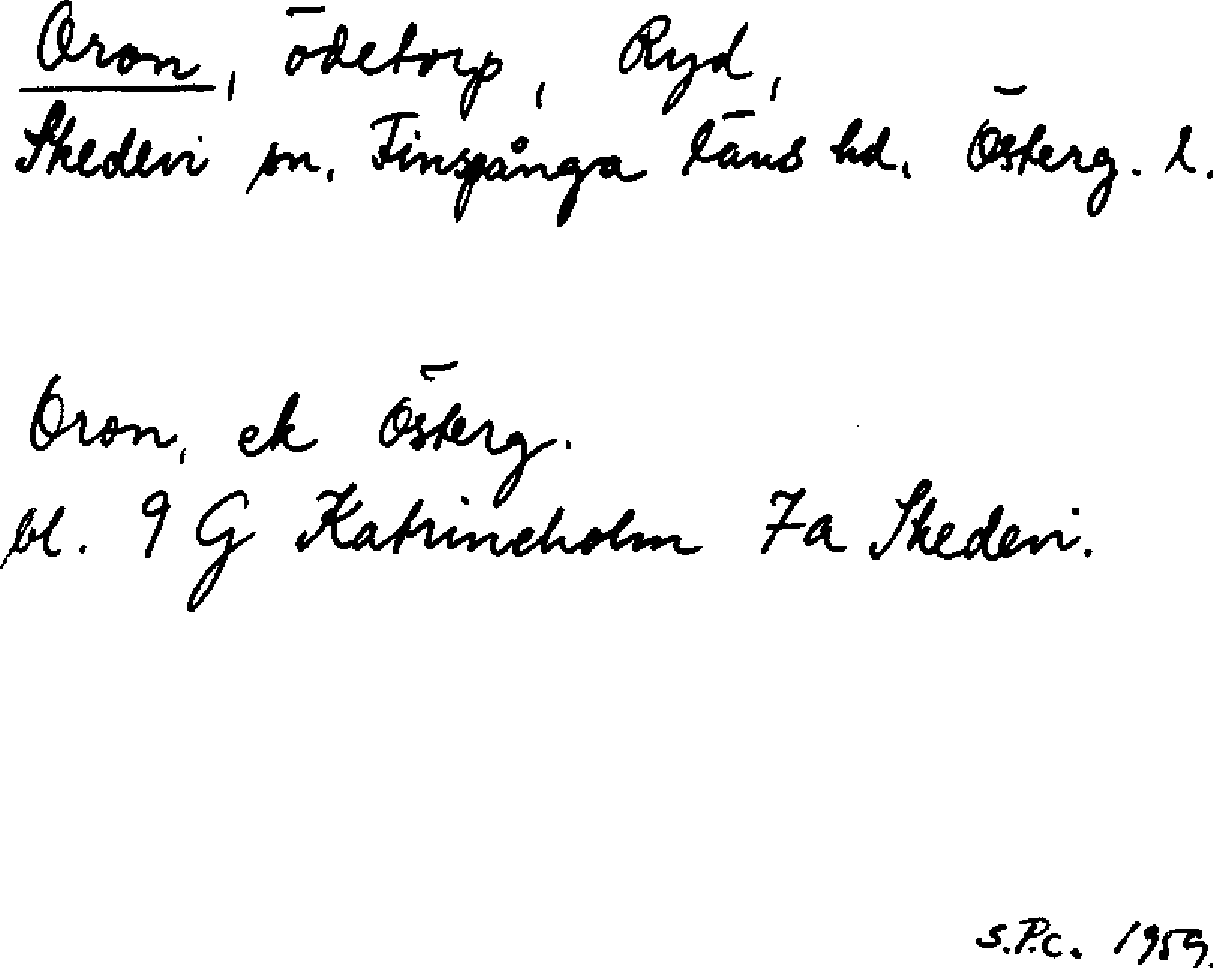 Oron, ödetorp, Ryd,
Skedevi sn. Finspånga läns hd. Österg. l.
Oron, ek Österg.
bl. 9 G Katrineholm 7a Skedevi.
S.P.c. 1959.